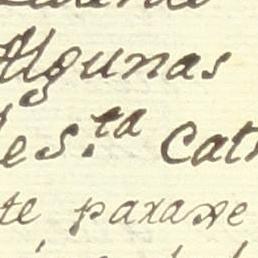 Algunas
de S.ta Cat
te paraxe